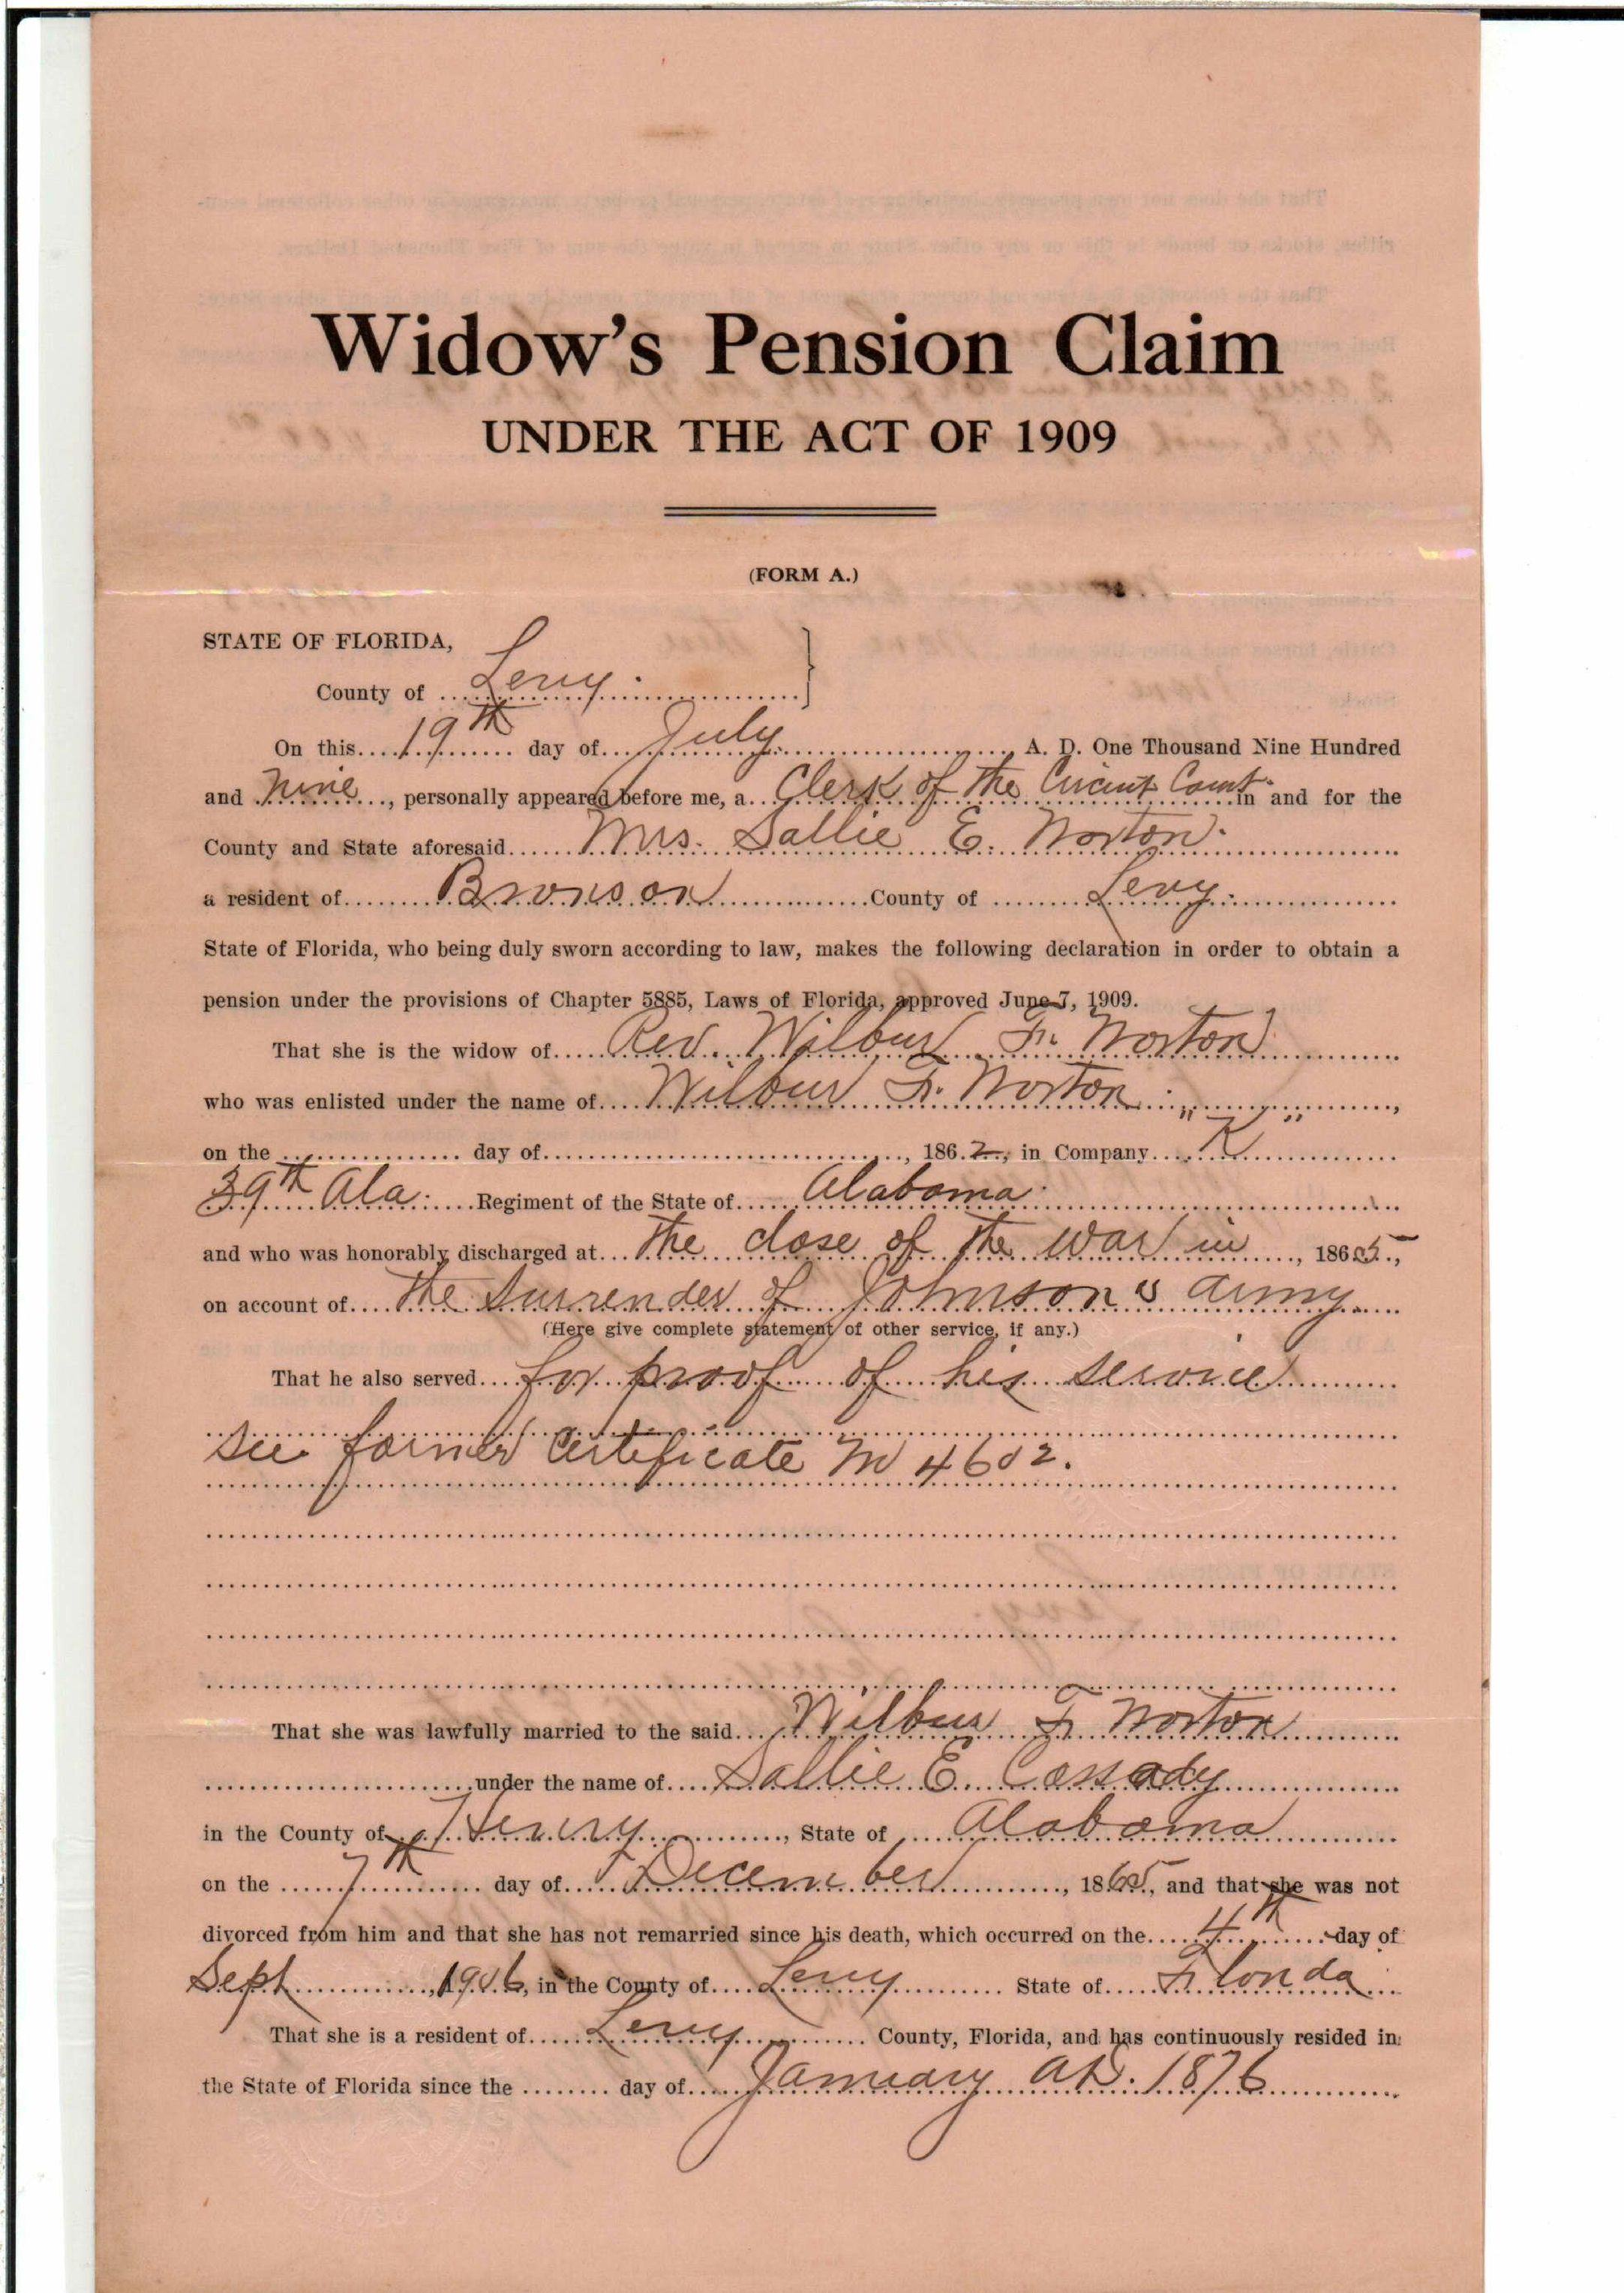 Widow's Pension Claim
UNDER THE ACT OF 1909
(FORM A.)
STATE OF FLORIDA,
County of Levy.
On this 19th day of July A. D. One Thousand Nine Hundred
and Nine, personally appeared before me, a Clerk of the Circuit Court in and for the
County and State aforesaid Mrs. Sallie E. Norton.
a resident of Bronson County of Levy.
State of Florida, who being duly sworn according to law, makes the following declaration in order to obtain a
pension under the provisions of Chapter 5885, Laws of Florida, approved June 7, 1909.
That she is the widow of Rev. Wilbur F. Norton
who was enlisted under the name of Wilbur F. Norton,
on the day of, 1862, in Company "K"
39th Ala. Regiment of the State of Alabama.
and who was honorably discharged at the close of the war in, 1865,
on account of the Surrender of Johnson's army
(Here give complete statement of other service, if any.)
That he also served for proof of his service
see former Certificate No 4602.
That she was lawfully married to the said Wilbur F. Norton
under the name of Sallie E. Cassady
in the County of Henry, State of Alabama
on the 7th day of December, 1865, and that she was not
divorced from him and that she has not remarried since his death, which occurred on the 4th day of
Sept, 1906, in the County of Levy State of Florida
That she is a resident of Levy County, Florida, and has continuously resided in
the State of Florida since the day of January A.D. 1876